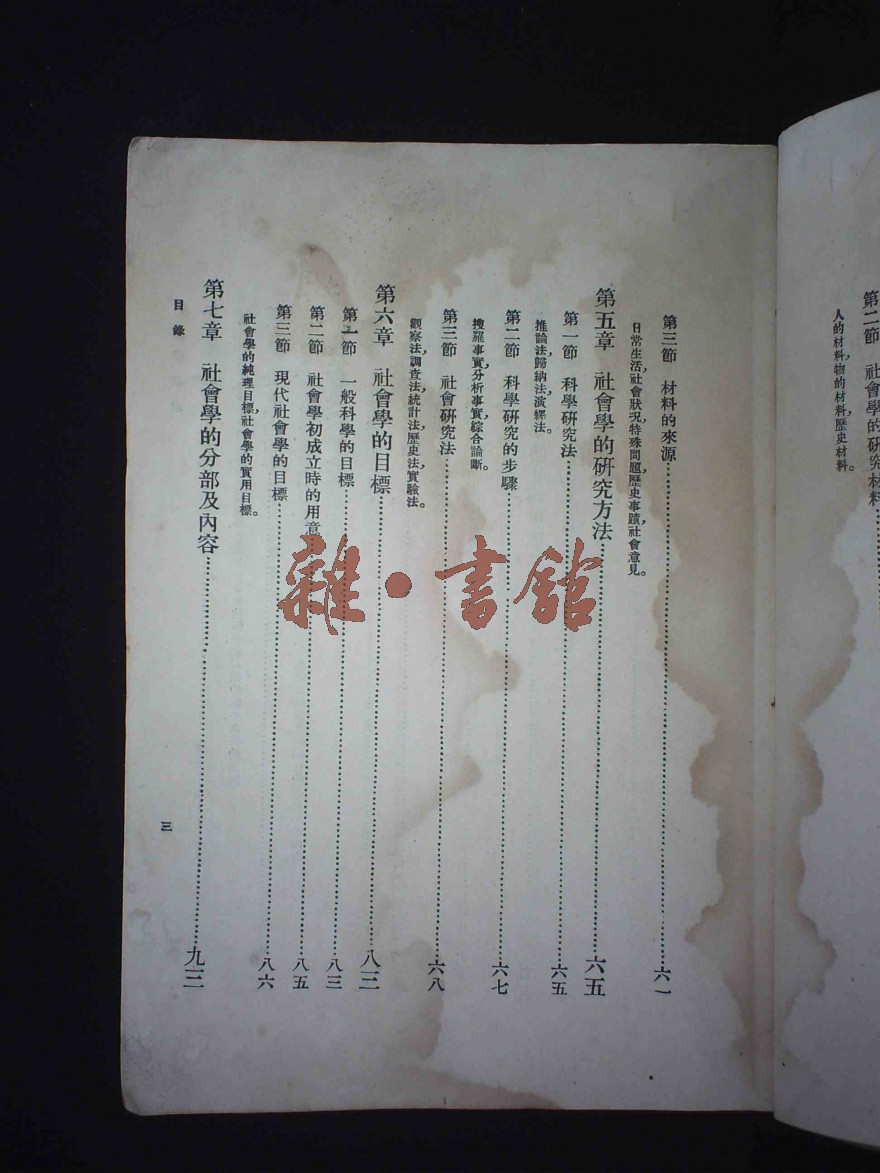 第二節　社會學的研究材料
人的材料，物的材料，歷史材料。
第三節　材料的來源……六一
日常生活，社會狀況，特殊問題，歷史事蹟，社會意見。
第五章　社會學的研究方法……六五
第一節　科學研究法……六五
推論法，歸納法，演繹法。
第二節　科學研究的步驟……六七
搜羅事實，分析事實，綜合論斷。
第三節　社會研究法……六八
觀察法，調查法，統計法，歷史法，實驗法。
第六章　社會學的目標……八三
第一節　一般科學的目標……八三
第二節　社會學初成立時的用意……八五
第三節　現代社會學的目標……八六
社會學的純理目標，社會學的實用目標。
第七章　社會學的分部及內容……九三
目錄
三
雜·書館